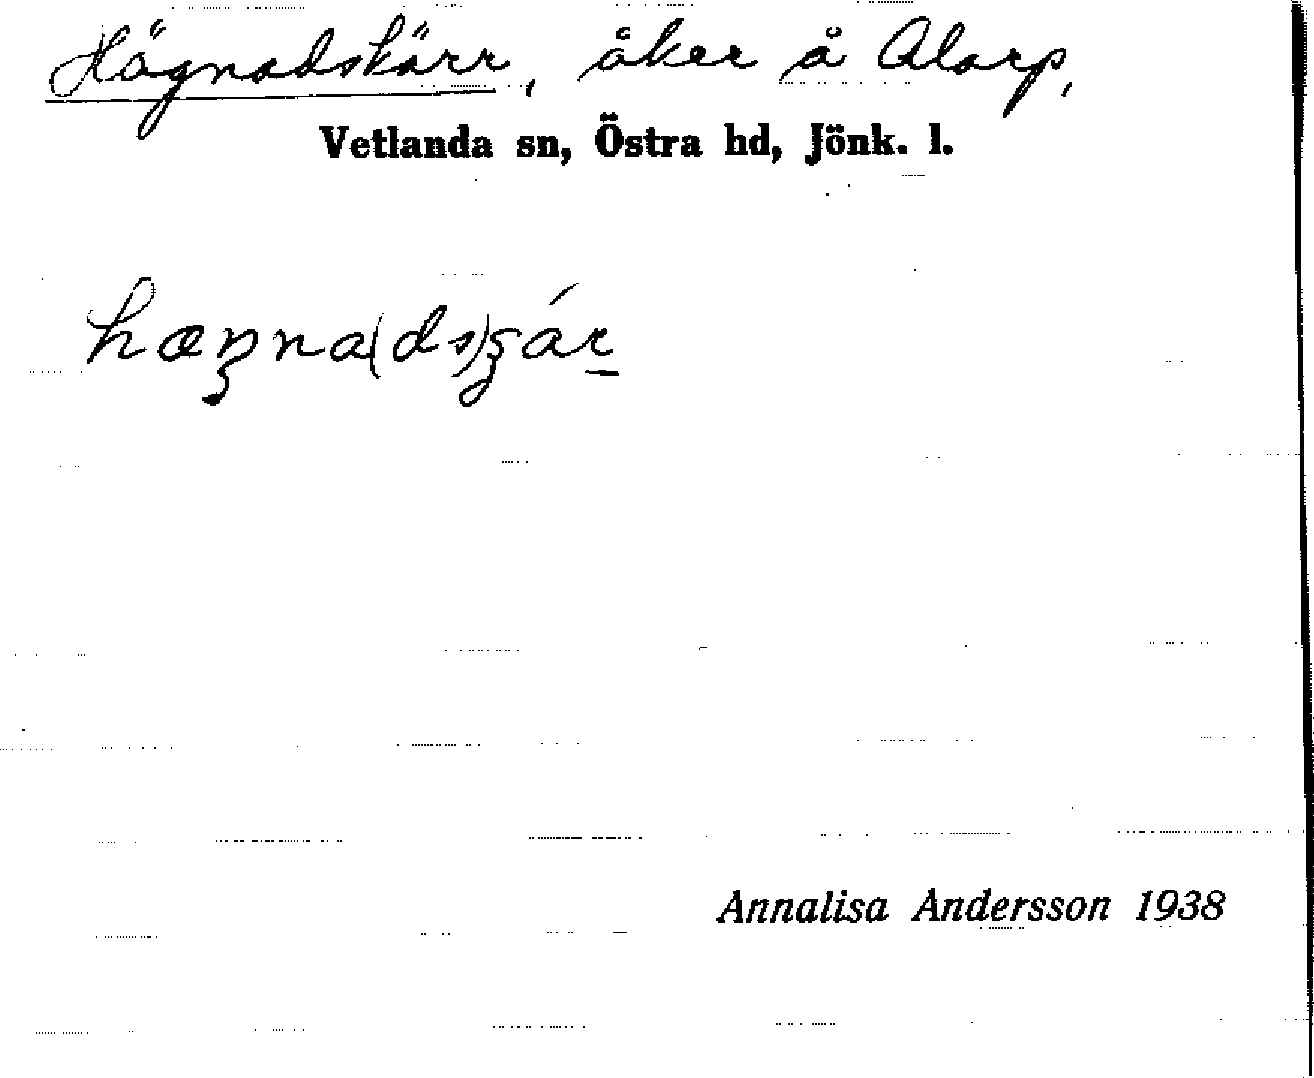 Hägnadskärr, åker å Alarp,
Vetlanda sn, Östra hd, Jönk. l.
Annalisa Andersson 1938